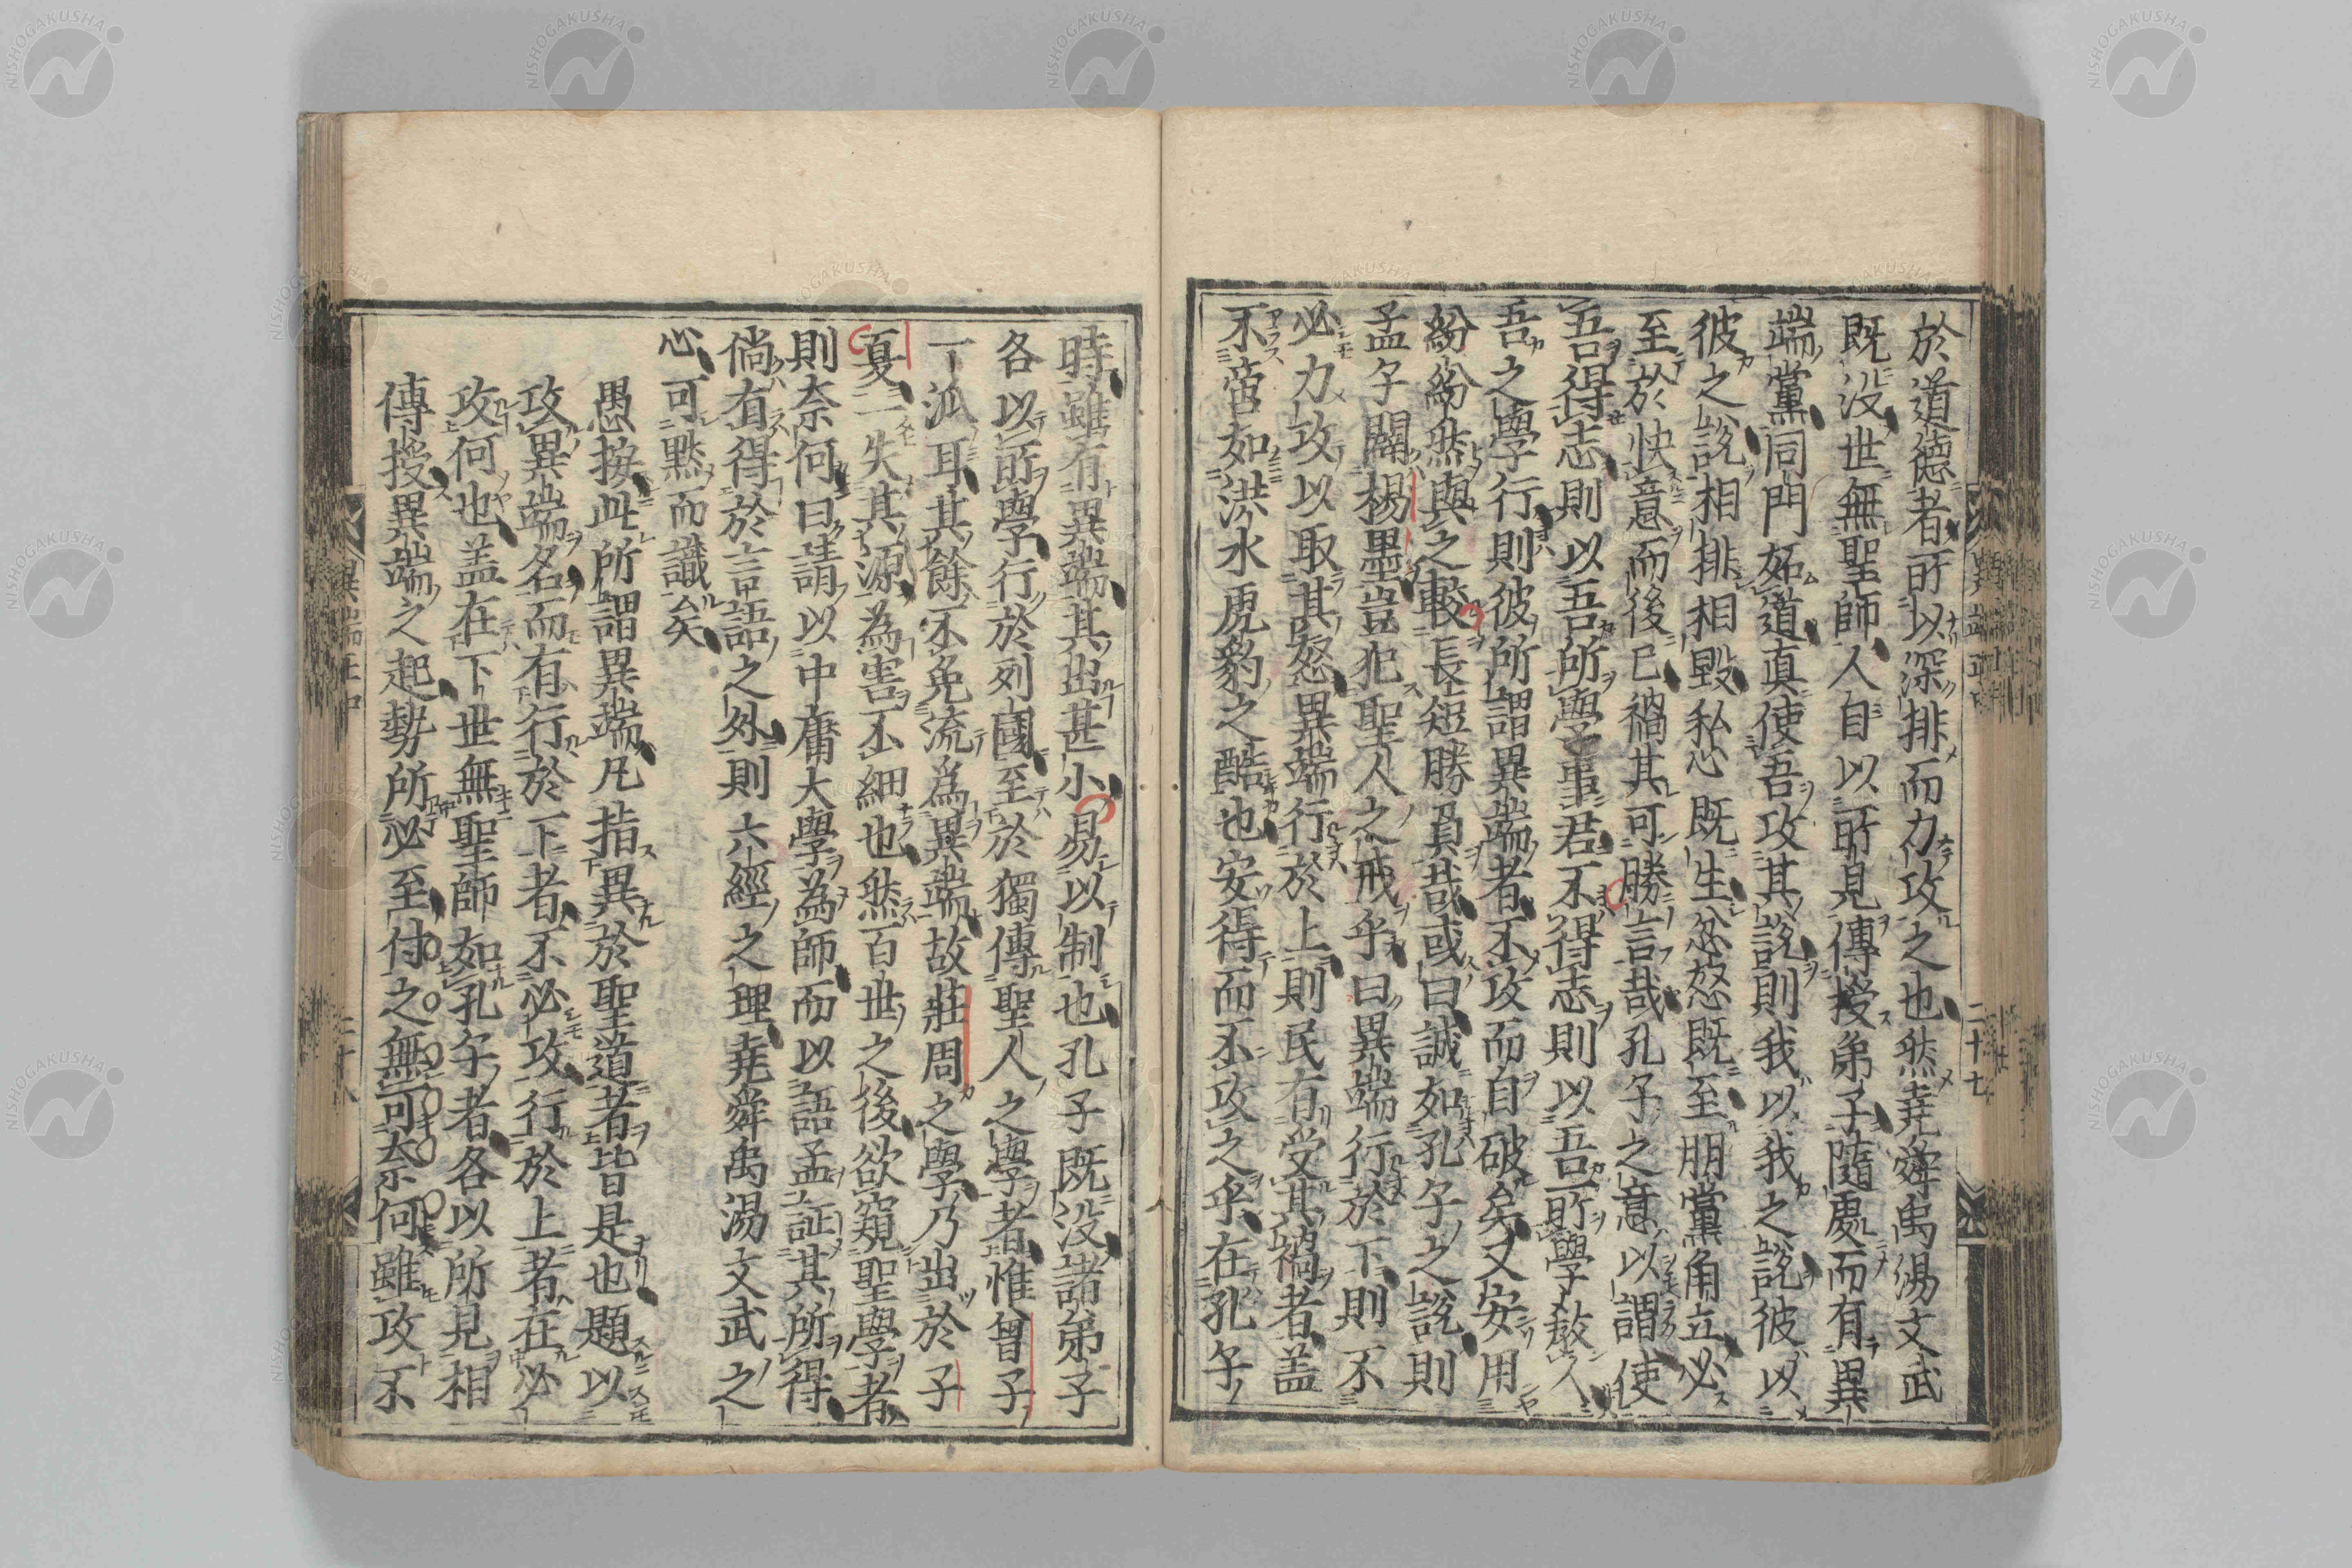 於道德者所以深排而力攻之也然堯舜禹湯文武
既没世無聖師人自以所見傳授弟子隨處而有異
端黨同門妬道真使吾攻其說則我以我之說彼以
彼之說相排相毀私心既生忿怒既至朋黨角立必
至於快意而後已禍其可勝言哉孔子之意以謂使
吾得志則以吾所學事君不得志則以吾所學敎人
吾之學行則彼所謂異端者不攻而自破矣又安用
紛紛然與之較長短勝負哉或曰誠如孔子之說則
孟子闢楊墨豈犯聖人之戒乎曰異端行於下則不
必力攻以取其怒異端行於上則民有受其禍者盖
不啻如洪水虎豹之酷也安得而不攻之乎在孔子
二十七
時雖有異端其出甚小易以制也孔子既没諸弟子
各以所學行於列國至於獨傳聖人之學者惟曾子
一派耳其餘不免流為異端故莊周之學乃出於子
夏一失其源為害不細也然百世之後欲窺聖學者
則奈何曰請以中庸大學為師而以語孟証其所得
倘有得於言語之外則六經之理堯舜禹湯文武之
心可黙而識矣
愚按此所謂異端凡指異於聖道者皆是也題以
攻異端名而有行於下者不必攻行於上者在必
攻何也盖在下世無聖師如孔子者各以所見相
傳授異端之起勢所必至付之無可奈何雖攻不
NISHOGAKUSHA